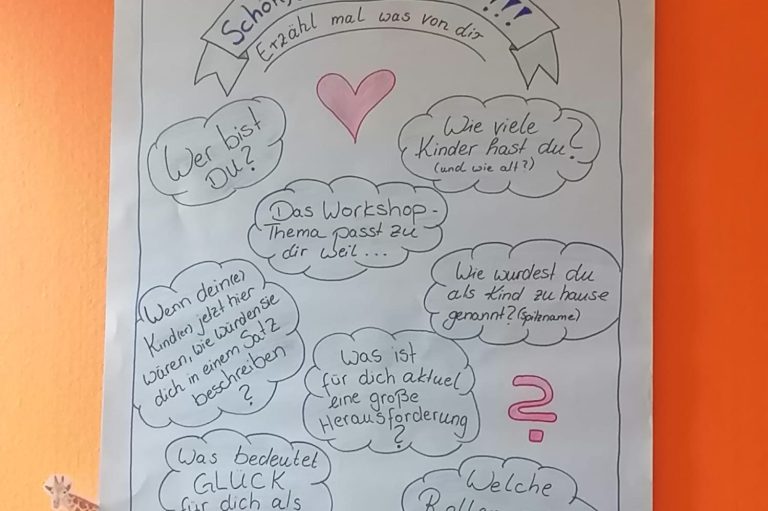 Erzähl mal was von dir
Wer bist
Du?
Wie viele
Kinder hast du?
(und wie alt?)
Das Workshop-
Thema passt zu
dir weil...
Wie wurdest du
als Kind zu hause
genannt? (Spitzname)
Wenn dein(e)
Kind(er) jetzt hier
wären, wie würden sie
dich in einem Satz
beschreiben
?
Was ist
für dich aktuel
eine große
Herausforderung
?
?
Was bedeutet
GLÜCK
für dich als
Welche